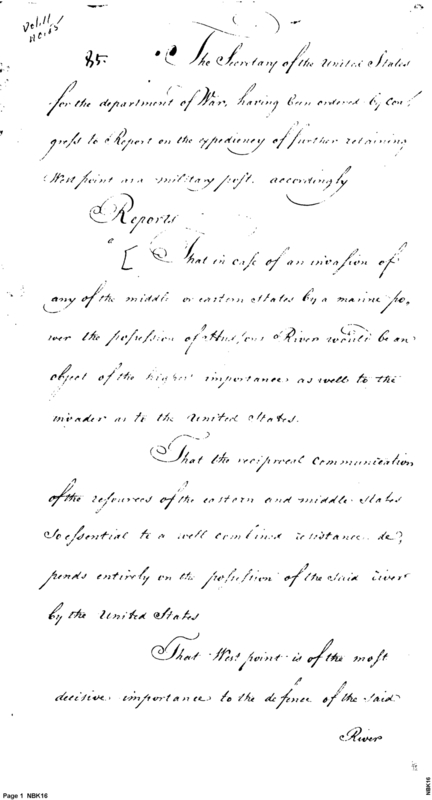 Vol. 11
No. 65
85. The Secretary of the United States
for the department of War, having been ordered by con,
gress to Report on the expediency of further retaining
West point as a military post. accordingly
Reports
[ That in case of an invasion of
any of the middle or eastern States by a marine po,
wer the possession of Hudsons River would be an
object of the highest importance as well to the
invader as to the United States.
That the reciprocal communication
of the resources of the eastern and middle States
so essential to a well combined resistance de,
pends entirely on the possession of the said river
by the United States
That West point is of the most
decisive importance to the defence of the said
River
Page 1 NBK16
NBK16